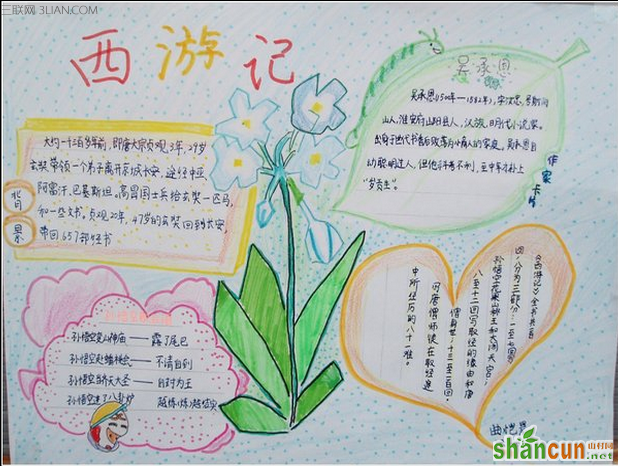 三联网 3LIAN.COM
西游记
背景
大约一千三百多年前,即唐太宗贞观3年,29岁
玄奘带领一个弟子离开京城长安,途经中亚
阿富汗、巴基斯坦。高昌国士兵给玄奘一匹马
和一些文书。贞观20年,47岁的玄奘回到长安,
带回657部经书
吴承恩
作家卡片
吴承恩(1500年—1582年),字汝忠,号射阳
山人,淮安府山阳县人,汉族,明代小说家。
出身于世代书香后败落为小商人的家庭,吴承恩自
幼聪明过人,但他科考不利,至中年才补上
"岁贡生"。
孙悟空变山神庙——露了尾巴
孙悟空赴蟠桃会——不请自到
孙悟空当齐天大圣——自封为王
孙悟空进了八卦炉——越炼(练)越结实
《西游记》全书共百
回,分为三部分:一至七回写
孙悟空花果山称王和大闹天宫;
八至十二回写取经的缘由和唐
僧身世;十三至一百回
写唐僧师徒在取经途
中所经历的八十一难。
shancun
山村网
.net